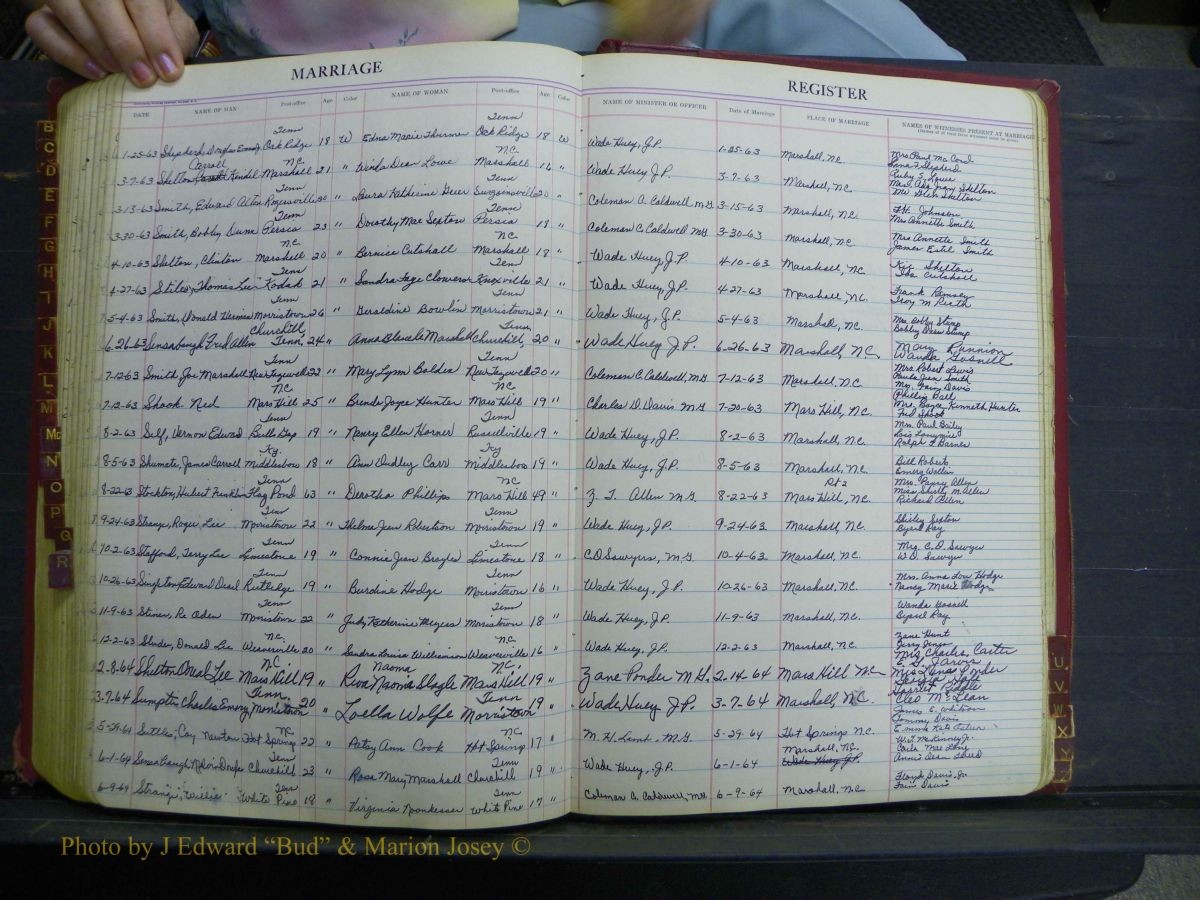 MARRIAGE REGISTER
DATE NAME OF MAN Post-office Age Color NAME OF WOMAN Post-office Age Color NAME OF MINISTER OR OFFICER Date of Marriage PLACE OF MARRIAGE NAMES OF WITNESSES PRESENT AT MARRIAGE
Tenn Tenn
1-25-63 Sheperd, Douglas Oak Ridge 18 W Edna Marie Thurmer Oak Ridge 18 W Wade Huey, J.P. 1-25-63 Marshall, NC Mrs. Paul McCord
Carroll N.C. N.C.
3-7-63 Shelton Kendel Marshall 21 " Winda Dean Lowe Marshall 16 " Wade Huey J.P. 3-7-63 Marshall, N.C. Mrs. Ada Shelton
Tenn Tenn
3-15-63 Smith, Edward Allen Knoxville 20 " Laura Katherine Greer 20 " Coleman C. Caldwell M.G. 3-15-63 Marshall, N.C. F.H. Johnson
Mrs Annette Smith
Tenn Tenn
3-30-63 Smith, Bobby Persia 23 " Dorothy Mae Sexton Persia 18 " Coleman C. Caldwell M.G. 3-30-63 Marshall, N.C. Mrs Annette Smith
James Smith
N.C. N.C.
4-10-63 Shelton, Clinton Marshall 20 " Bernice Cutshall Marshall 18 " Wade Huey, J.P. 4-10-63 Marshall, N.C. Shelton
Cutshall
Tenn Tenn
4-27-63 Stiles, Thomas Lee Kodak 21 " Sandra Faye Clowers Knoxville 21 " Wade Huey, J.P. 4-27-63 Marshall, N.C. Frank Ramsey
Troy M. Rath
Tenn Tenn
5-4-63 Smith, Donald Morristown 26 " Geraldine Bowlin Morristown 21 " Wade Huey, J.P. 5-4-63 Marshall, NC Mrs. Bobby Stump
Bobby Dean Stump
Churchill Tenn
6-26-63 Sensabaugh Fred Allen Tenn. 24 " Anna Marshall Churchill, 20 " Wade Huey J.P. 6-26-63 Marshall N.C. Mary Runnion
Wanda Gosnell
Tenn Tenn
7-12-63 Smith Joe Marshall New Tazewell 22 " Mary Lynn Bolden New Tazewell 20 " Coleman C. Caldwell, M.G. 7-12-63 Marshall, N.C. Mrs Robert Lewis
Paula Jean Smith
N.C. N.C.
7-12-63 Shook Ned Mars Hill 25 " Brenda Joyce Hunter Mars Hill 19 " Charles D. Davis M.G. 7-20-63 Mars Hill, N.C. Phillip Ball
Kenneth Hunter
Tenn Tenn
8-2-63 Self, Vernon Edward Bulls Gap 19 " Nancy Ellen Horner Russellville 19 " Wade Huey, J.P. 8-2-63 Marshall, N.C. Mrs. Paul Baily
Ralph F Barnes
Ky. Ky
8-5-63 Shumate, James Carroll Middlesboro 18 " Ann Dudley Carr Middlesboro 19 " Wade Huey, J.P. 8-5-63 Marshall, N.C. Bill Roberts
Emery Wallin
Tenn NC Rt 2
8-22-63 Stockton, Hubert Franklin Flag Pond 63 " Deratha Phillips Mars Hill 49 " Z. T. Allen M.G. 8-22-63 Mars Hill, N.C. Miss Shirley M. Allen
Richard Allen
Tenn Tenn
9-24-63 Strange, Roger Lee Morristown 22 " Thelma Jean Robertson Morristown 19 " Wade Huey, J.P. 9-24-63 Marshall, N.C. Shirley Sexton
Byard Ray
Tenn Tenn
10-2-63 Stafford, Terry Lee Limestone 19 " Connie Jean Broyles Limestone 18 " C.D. Sawyers, M.G. 10-4-63 Marshall, N.C. Mrs. C.D. Sawyer
W.D. Sawyer
Tenn Tenn
10-26-63 Singleton, Edward Rutledge 19 " Burdine Hodge Morristown 16 " Wade Huey, J.P. 10-26-63 Marshall, N.C. Mrs. Anna Lou Hodge
Nancy Marie Hodge
Tenn Tenn
11-9-63 Stiner, Re Aden Morristown 22 " Judy Katherine Meyers Morristown 18 " Wade Huey, J.P. 11-9-63 Marshall, N.C. Wanda Gosnell
Byard Ray
N.C. N.C.
12-2-63 Sluder, Donald Lee Weaverville 20 " Sandra Louise Williamson Weaverville 16 " Wade Huey, J.P. 12-2-63 Marshall, N.C. Zane Hunt
N.C. Naoma N.C. Mrs Charles Carter
2-8-64 Shelton Lee Mars Hill 19 " Riva Naoma Slagle Mars Hill 19 " Zane Ponder M.G. 2-14-64 Mars Hill N.C. E. G. Jarvis
Tenn. Tenn
3-7-64 Sumpter Charles Emory Morristown 20 Loella Wolfe Morristown 19 " Wade Huey J.P. 3-7-64 Marshall, N.C. Cleo McLean
N.C. N.C.
5-29-64 Suttles, Coy Newton Hot Springs 22 " Patsy Ann Cook Hot Springs 17 " M. H. M.G. 5-29-64 Hot Springs N.C. Tommy Davis
Tenn Tenn Marshall, N.C. W.T. McKinney Jr.
6-1-64 Sensabaugh Churchill 23 " Rosa Mary Marshall Churchill 19 " Wade Huey, J.P. 6-1-64 Wade Huey J.P.
Tenn Tenn Floyd Davis, Jr
6-9-64 Strange, Willie White Pine 18 " Virginia Noonkesser White Pine 17 " Coleman C. Caldwell, M.G. 6-9-64 Marshall, N.C. Fain Davis
B
C
D
E
F
G
H
I
J
K
L
M
Mc
N
O
P
Q
R
U
V
W
X
Y
Photo by J Edward “Bud” & Marion Josey ©